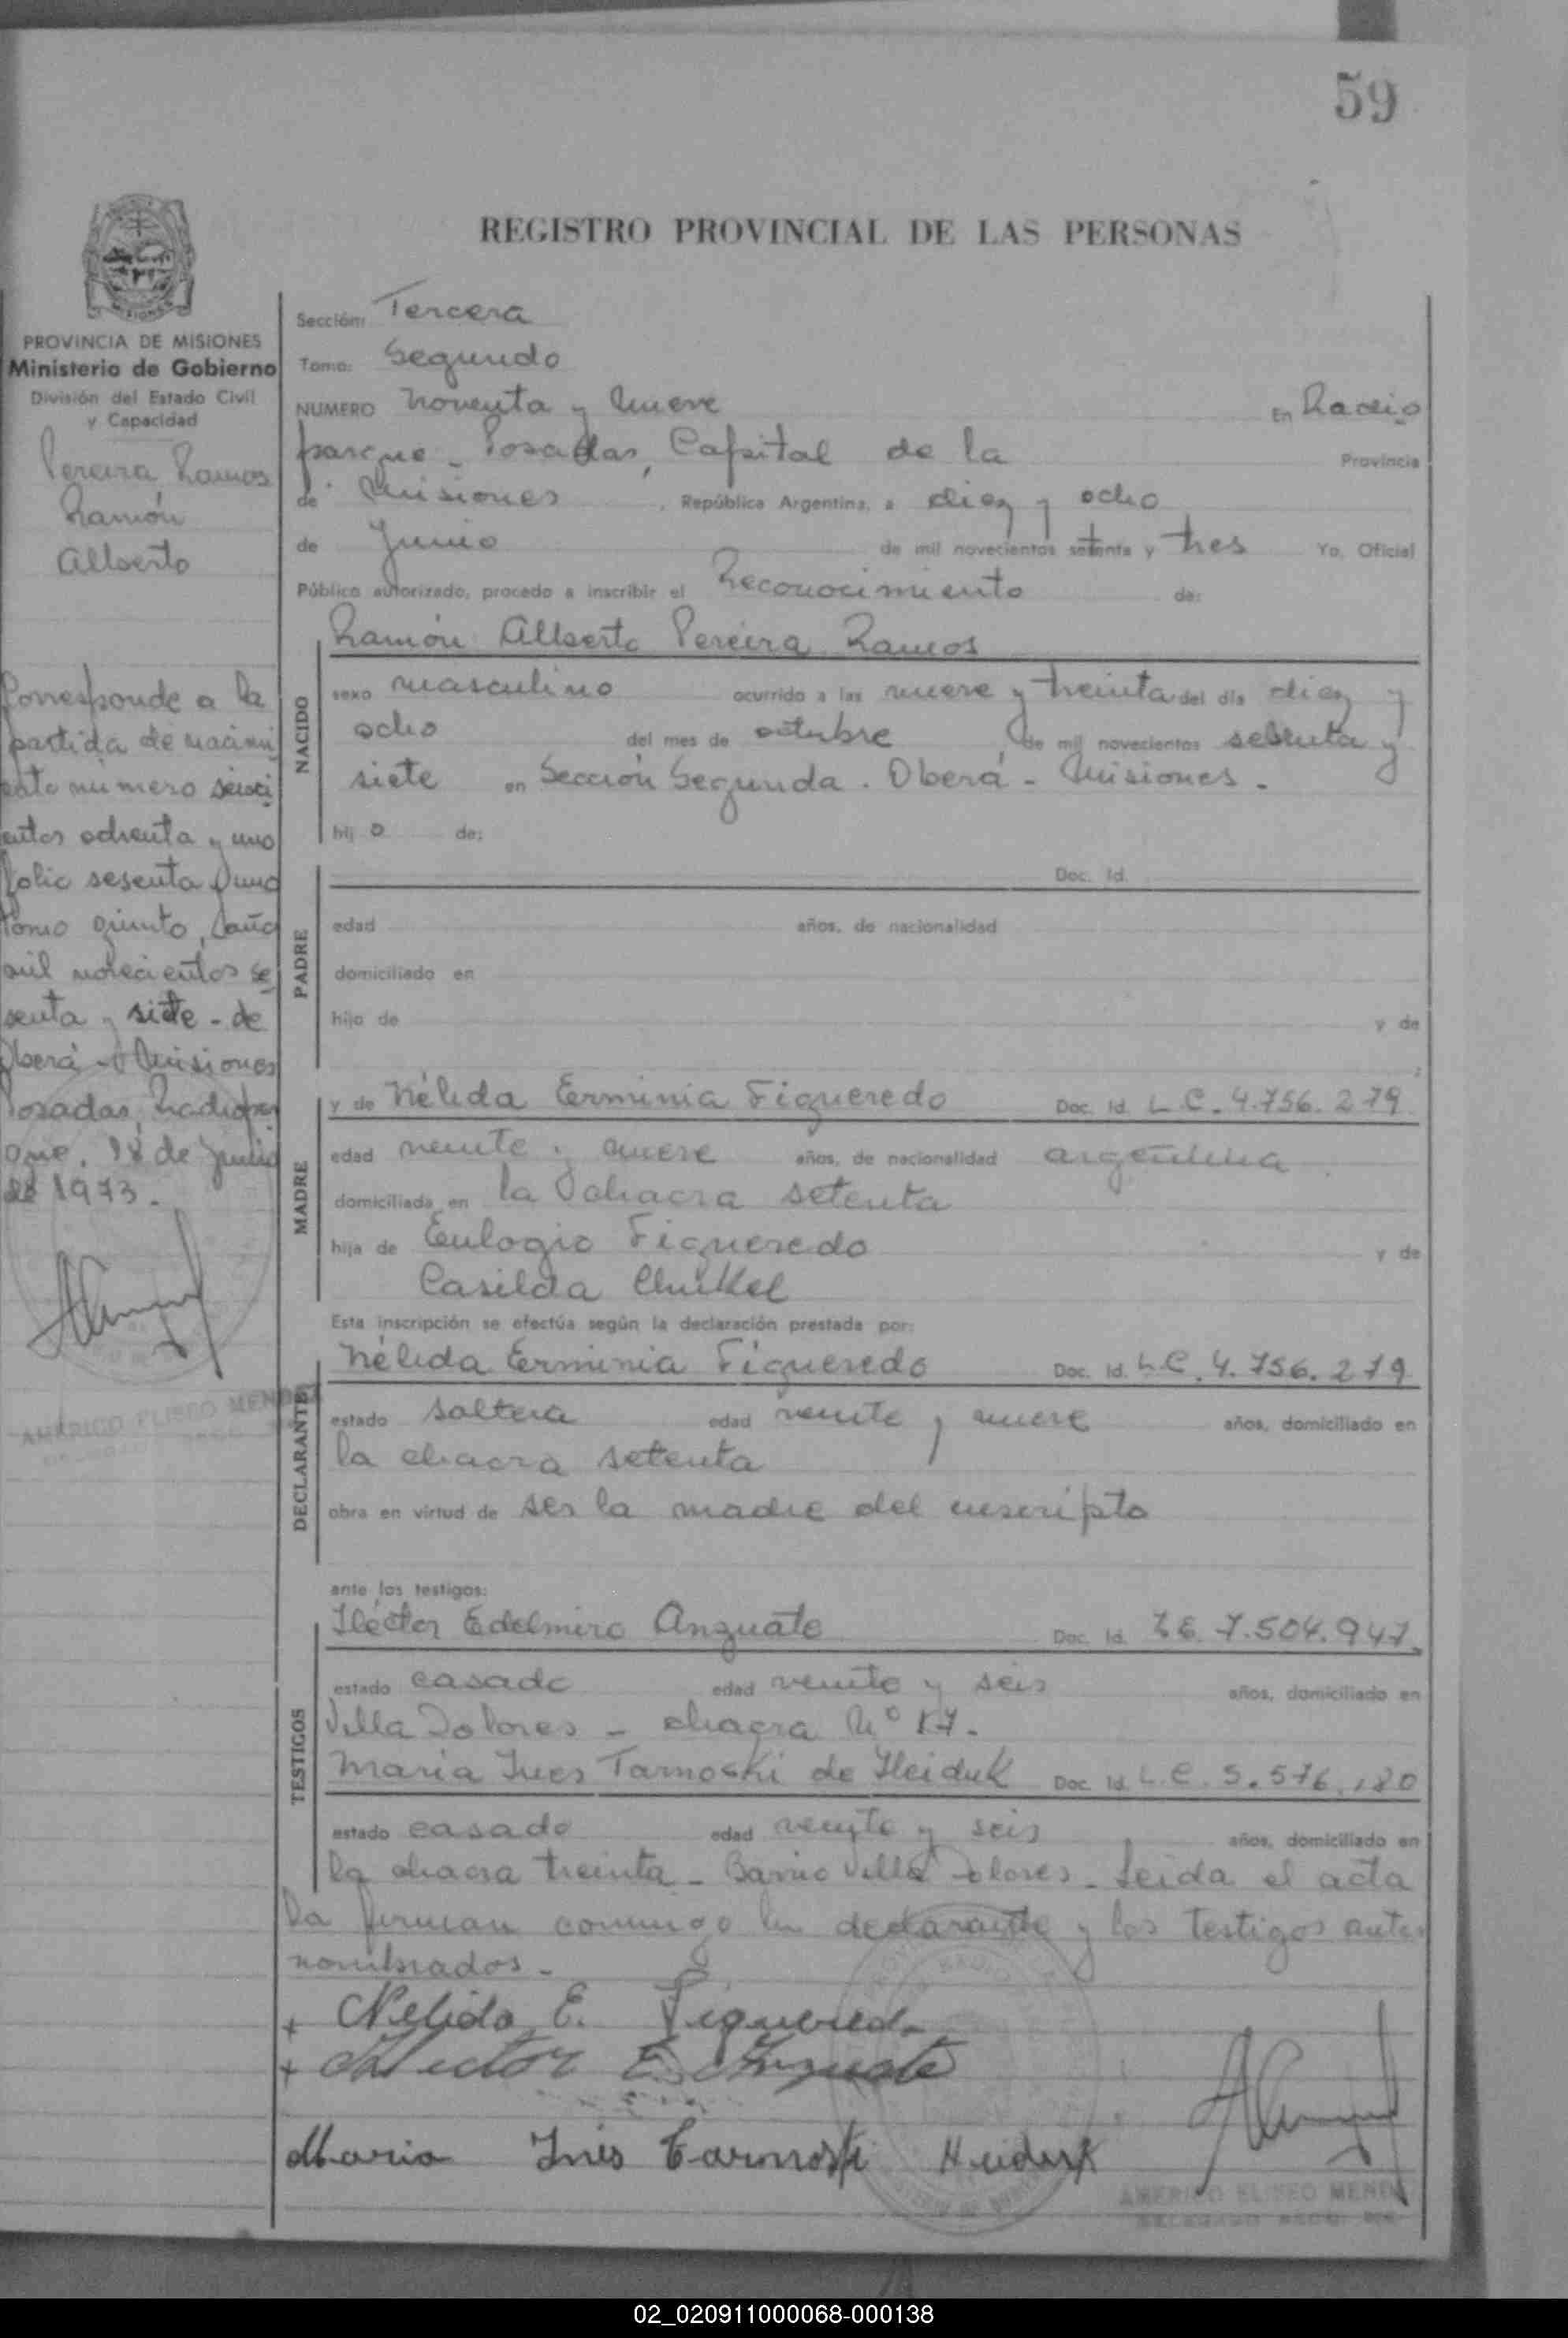 59
REGISTRO PROVINCIAL DE LAS PERSONAS
PROVINCIA DE MISIONES
Ministerio de Gobierno
División del Estado Civil
y Capacidad
Pereira Ramos
Ramón
Alberto
Corresponde a la
partida de nacimi
ento número seisci
entos ochenta y uno
folio sesenta y uno
tomo quinto, año
mil novecientos se
senta y siete - de
Oberá - Misiones
Posadas, Radiopar
que, 18 de junio
de 1973.
AMERICO ELISEO MENDEZ
Sección: Tercera
Tomo: Segundo
NUMERO noventa y nueve En Radio
parque - Posadas, Capital de la Provincia
de Misiones, República Argentina, a diez y ocho
de Junio de mil novecientos setenta y tres Yo, Oficial
Público autorizado, procedo a inscribir el Reconocimiento de:
NACIDO
Ramón Alberto Pereira Ramos
sexo masculino ocurrido a las nueve y treinta del día diez y
ocho del mes de octubre de mil novecientos sesenta y
siete en Sección Segunda. Oberá - Misiones -
hij o de:
PADRE
Doc. Id.
edad años, de nacionalidad
domiciliado en
hijo de y de
MADRE
y de Nélida Erminia Figueredo Doc. Id. L.C. 4.756.279
edad veinte y nueve años, de nacionalidad argentina
domiciliada en la chacra setenta
hija de Eulogio Figueredo y de
Casilda
Esta inscripción se efectúa según la declaración prestada por:
DECLARANTE
Nélida Erminia Figueredo Doc. Id. L.C. 4.756.279
estado soltera edad veinte y nueve años, domiciliado en
la chacra setenta
obra en virtud de ser la madre del inscripto
ante los testigos:
TESTIGOS
Héctor Edelmiro Anzuate Doc. Id. 7.504.947
estado casado edad veinte y seis años, domiciliado en
Villa Dolores - chacra Nº 17.
Maria Ines Tarnoski de Heiduk Doc. Id. L.C. 5.576.180
estado casado edad veinte y seis años, domiciliado en
la chacra treinta - Barrio Villa Dolores - Leida el acta
la firman conmigo la declarante y los testigos ante
nombrados -
+ Nelida E. Figueredo
+ Hector E. Anzuate
Maria Inés Tarnoski Heiduk
AMERICO ELISEO MENDEZ
02_020911000068-000138